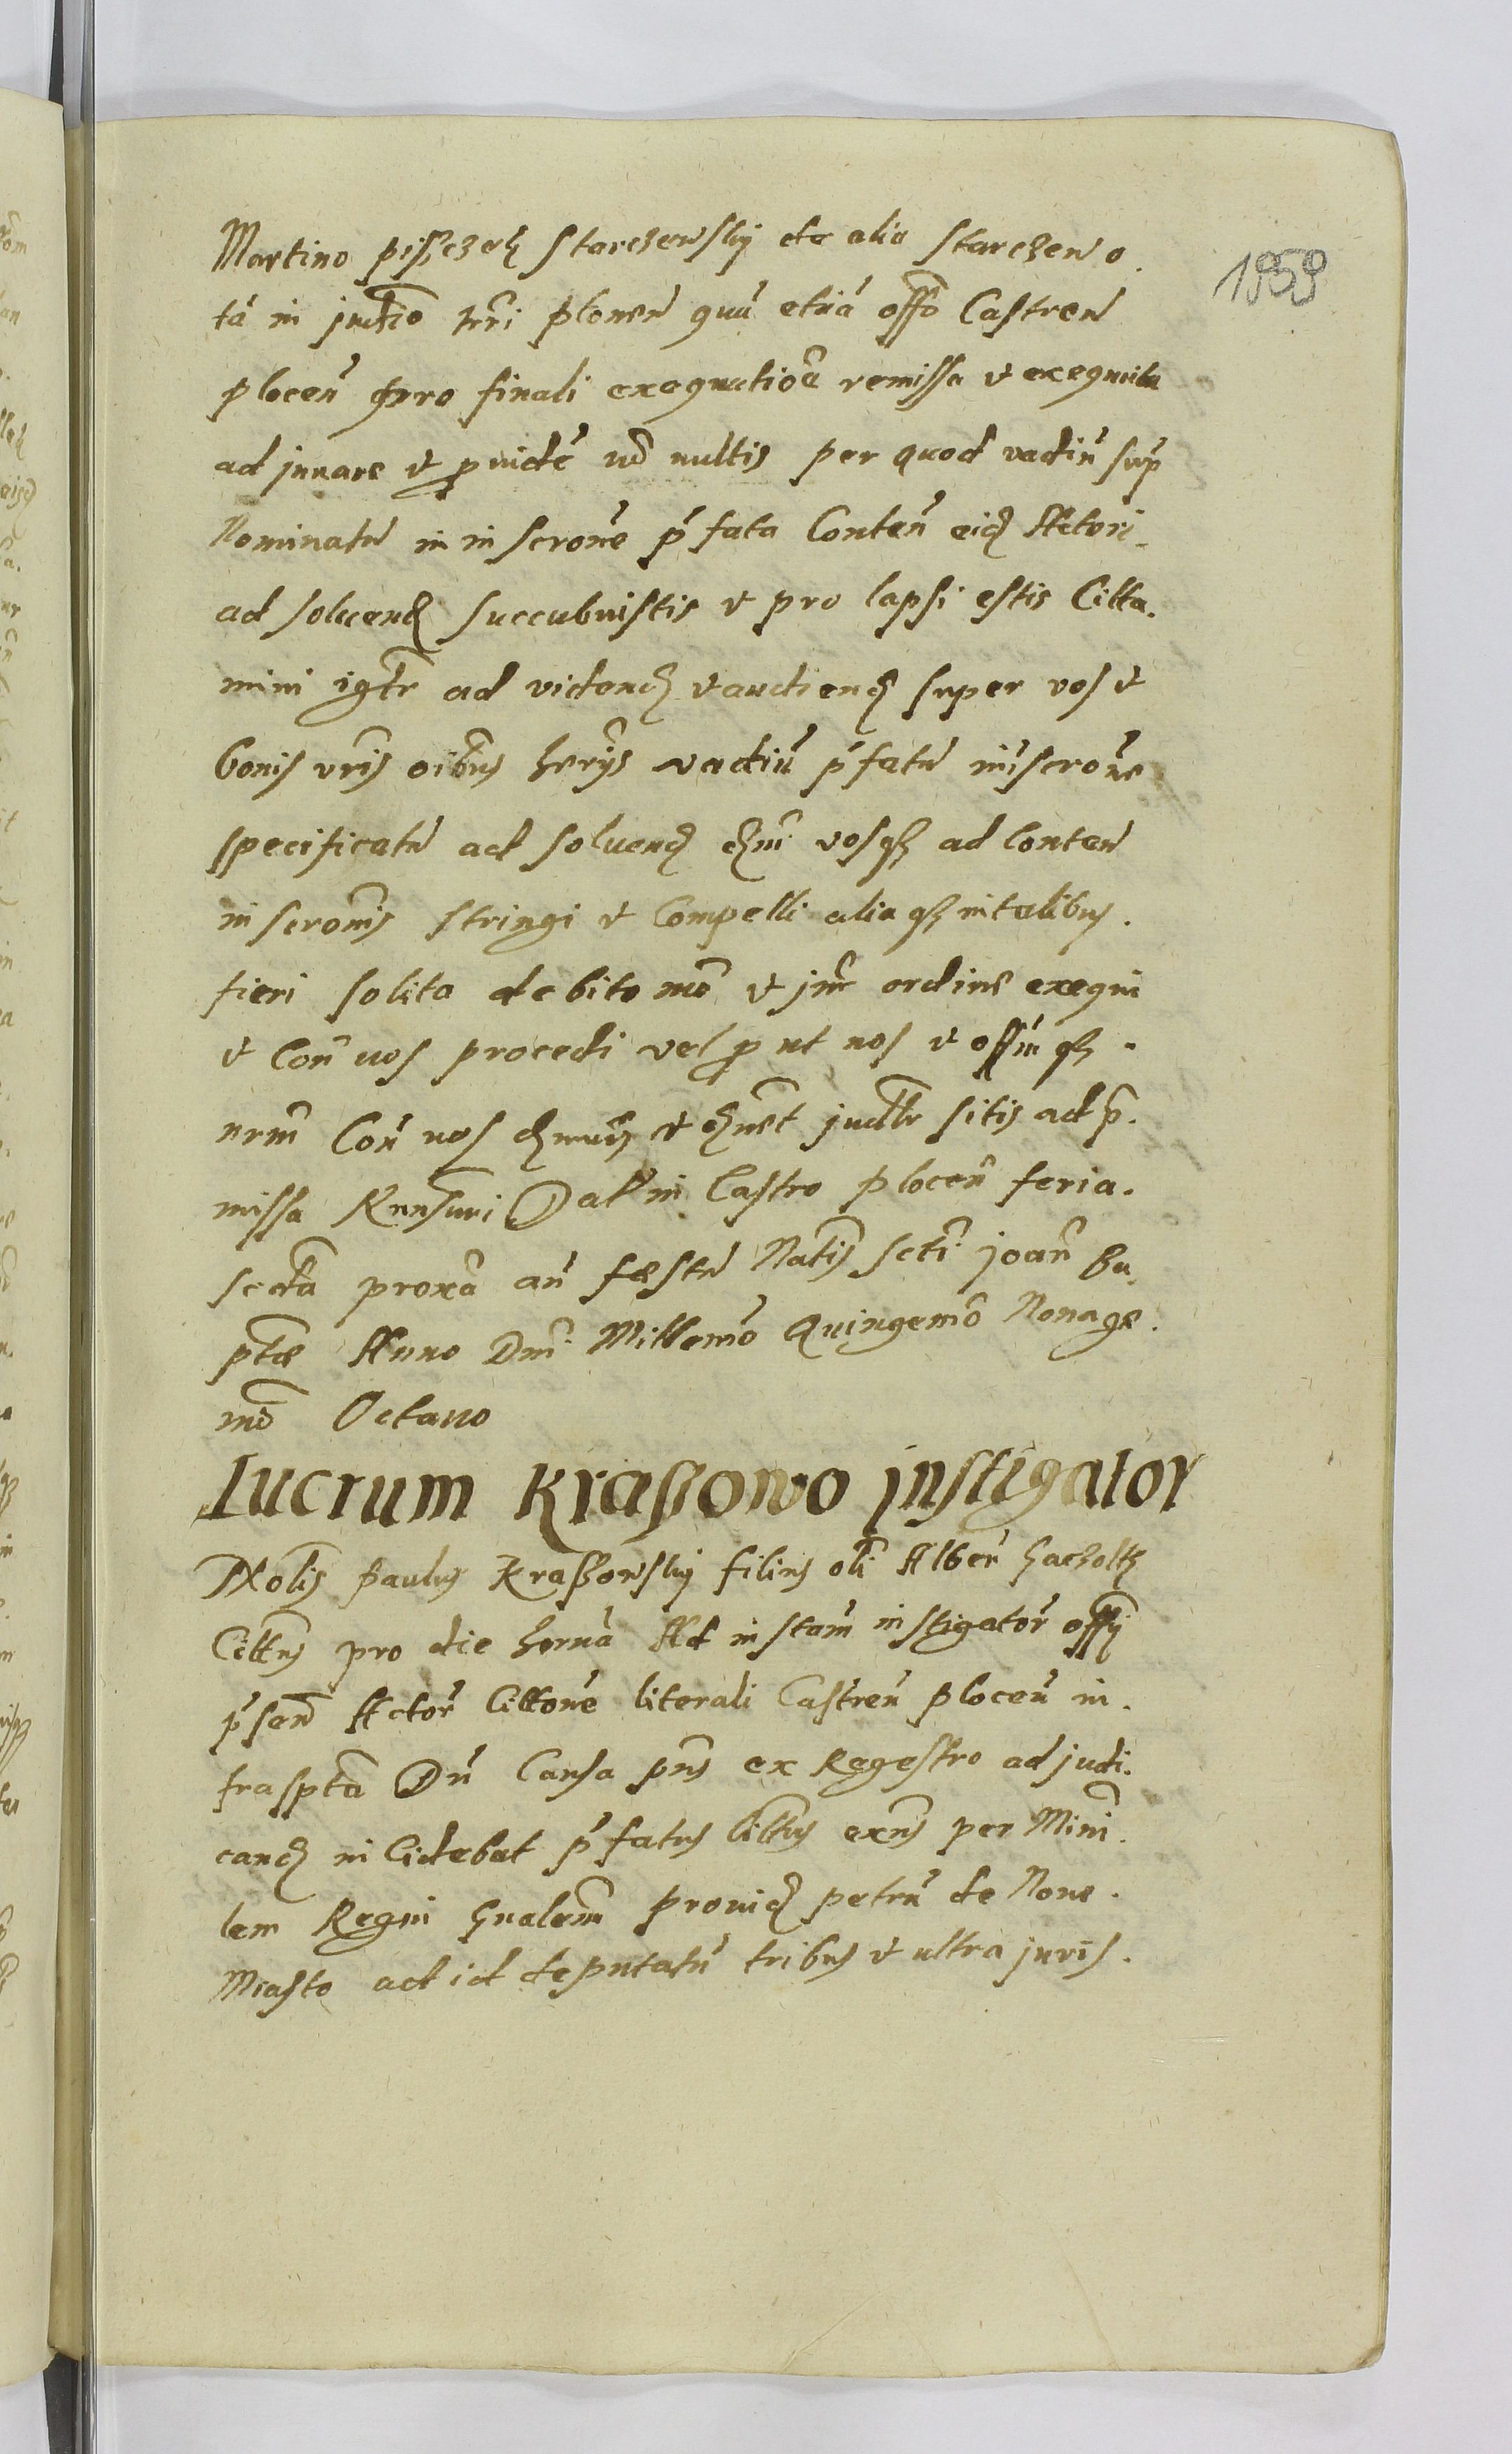 Martino piszczek Starczewsky de alia Starczewo
1959
tá in juđtio trri plonen̄ quā etiā offō Castren̄
plocen̄ pro finali exequutiōe remissa et exequuta
ad juuare et prouidē nō vultis per quod vadiū sup
Nominatū in inscrōne p̄fata Conten̄ eid Actori
ad soluend succubuistis et pro lapsi estis Citta.
mini igtr ad videnđ et audienđ super vos et
bonis vrīs oibus herijs vadiū p̄fatū in inscrōne
specificatū ad soluenđ vosq ad Conten̄
in scrōnis stringi et Compelli aliaq in talibus.
fieri solita debito mō et jur ordine exequi
et Con̄ vos procedi vel prout nos et offmq
nrm̄ Con̄ vos et judtr sitis ad p̄.
missa Rnnsuri Dat in Castro plocen̄ feria.
sexta proxa an̄ festū Natis scti joan̄ Ba
ptae Anno Dnī Millemō Quingemō Nonage.
mō Octauo
Lucrum Kraßowo jnstigator
Nolis paulus Kraßowsky filius oli Alber̄ Gacholtz
Cittus pro die herna Ad instam̄ instigator̄ offij
p̄sen̄ Actor̄ Cittōne literali Castren̄ plocen̄ in.
frasptā Dū Causa pn̄s ex Regestro ad judi.
canđ in Cidebat p̄fatus Cittus exn̄s per Mini.
lem Regni Gnalem prouid petrū de Noue.
Miasto ad id deputatū tribus et ultra juris.